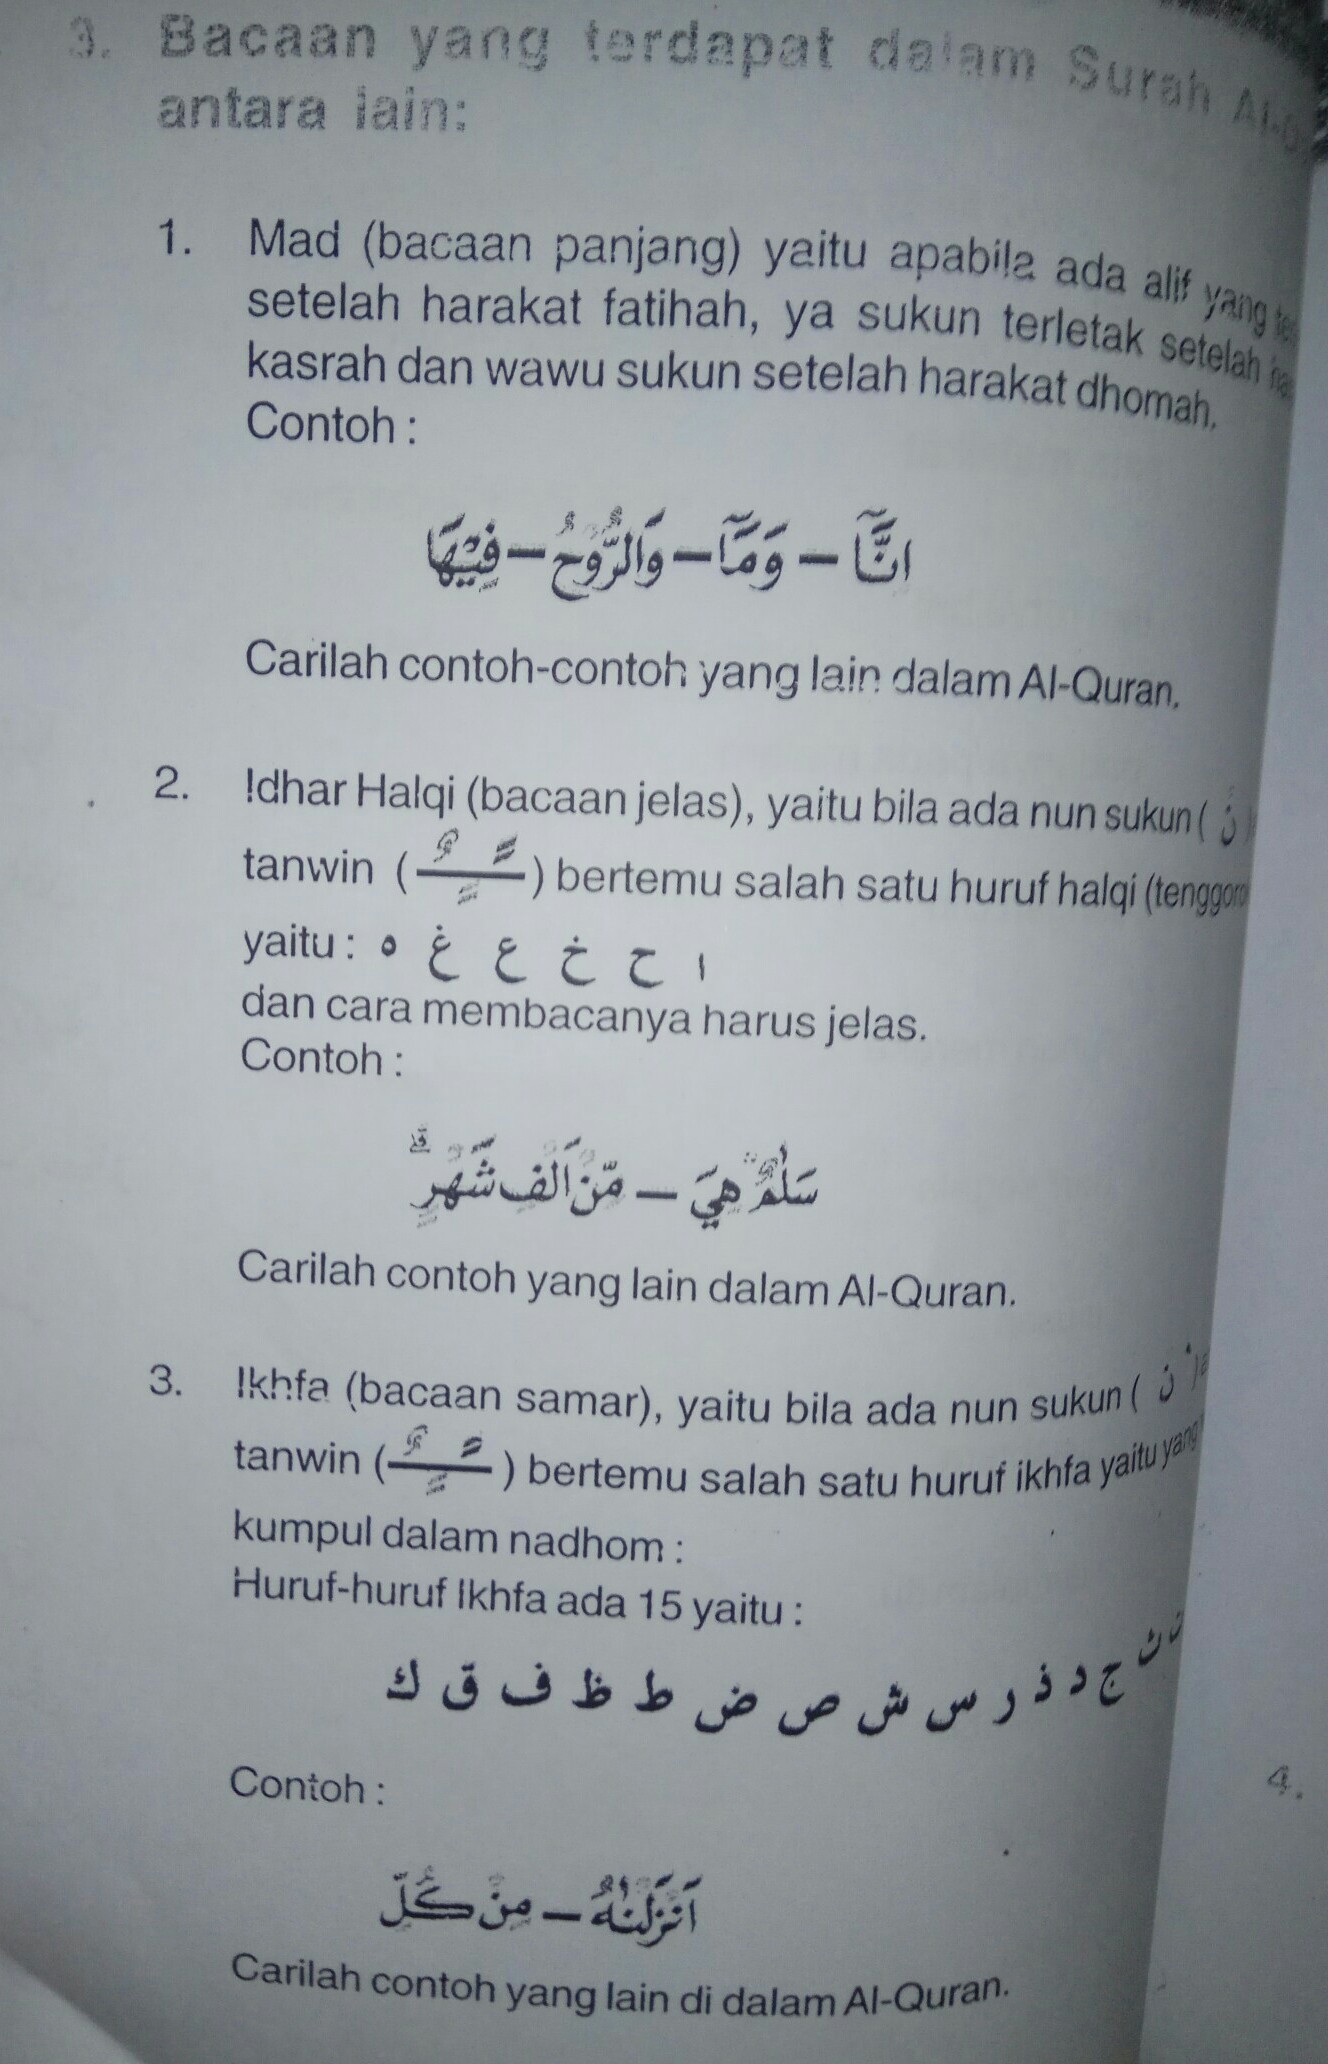 3. Bacaan yang terdapat dalam Surah
antara lain:
1. Mad (bacaan panjang) yaitu apabila ada alif yang
setelah harakat fatihah, ya sukun terletak setelah
kasrah dan wawu sukun setelah harakat dhomah.
Contoh :
اِنَّآ – وَمَآ – وَالرُّوْحُ – فِيْهَا
Carilah contoh-contoh yang lain dalam Al-Quran.
2. Idhar Halqi (bacaan jelas), yaitu bila ada nun sukun ( نْ )
tanwin ( ــًــٍــٌ ) bertemu salah satu huruf halqi
yaitu : ا ح خ ع غ ه
dan cara membacanya harus jelas.
Contoh :
سَلٰمٌ هِيَ – مِّنْ اَلْفِ شَهْرٍۗ
Carilah contoh yang lain dalam Al-Quran.
3. Ikhfa (bacaan samar), yaitu bila ada nun sukun ( نْ )
tanwin ( ــًــٍــٌ ) bertemu salah satu huruf ikhfa yaitu yang
kumpul dalam nadhom :
Huruf-huruf Ikhfa ada 15 yaitu :
ت ث ج د ذ ر س ش ص ض ط ظ ف ق ك
Contoh :
اَنْزَلْنٰهُ – مِنْ كُلِّ
Carilah contoh yang lain di dalam Al-Quran.
4.